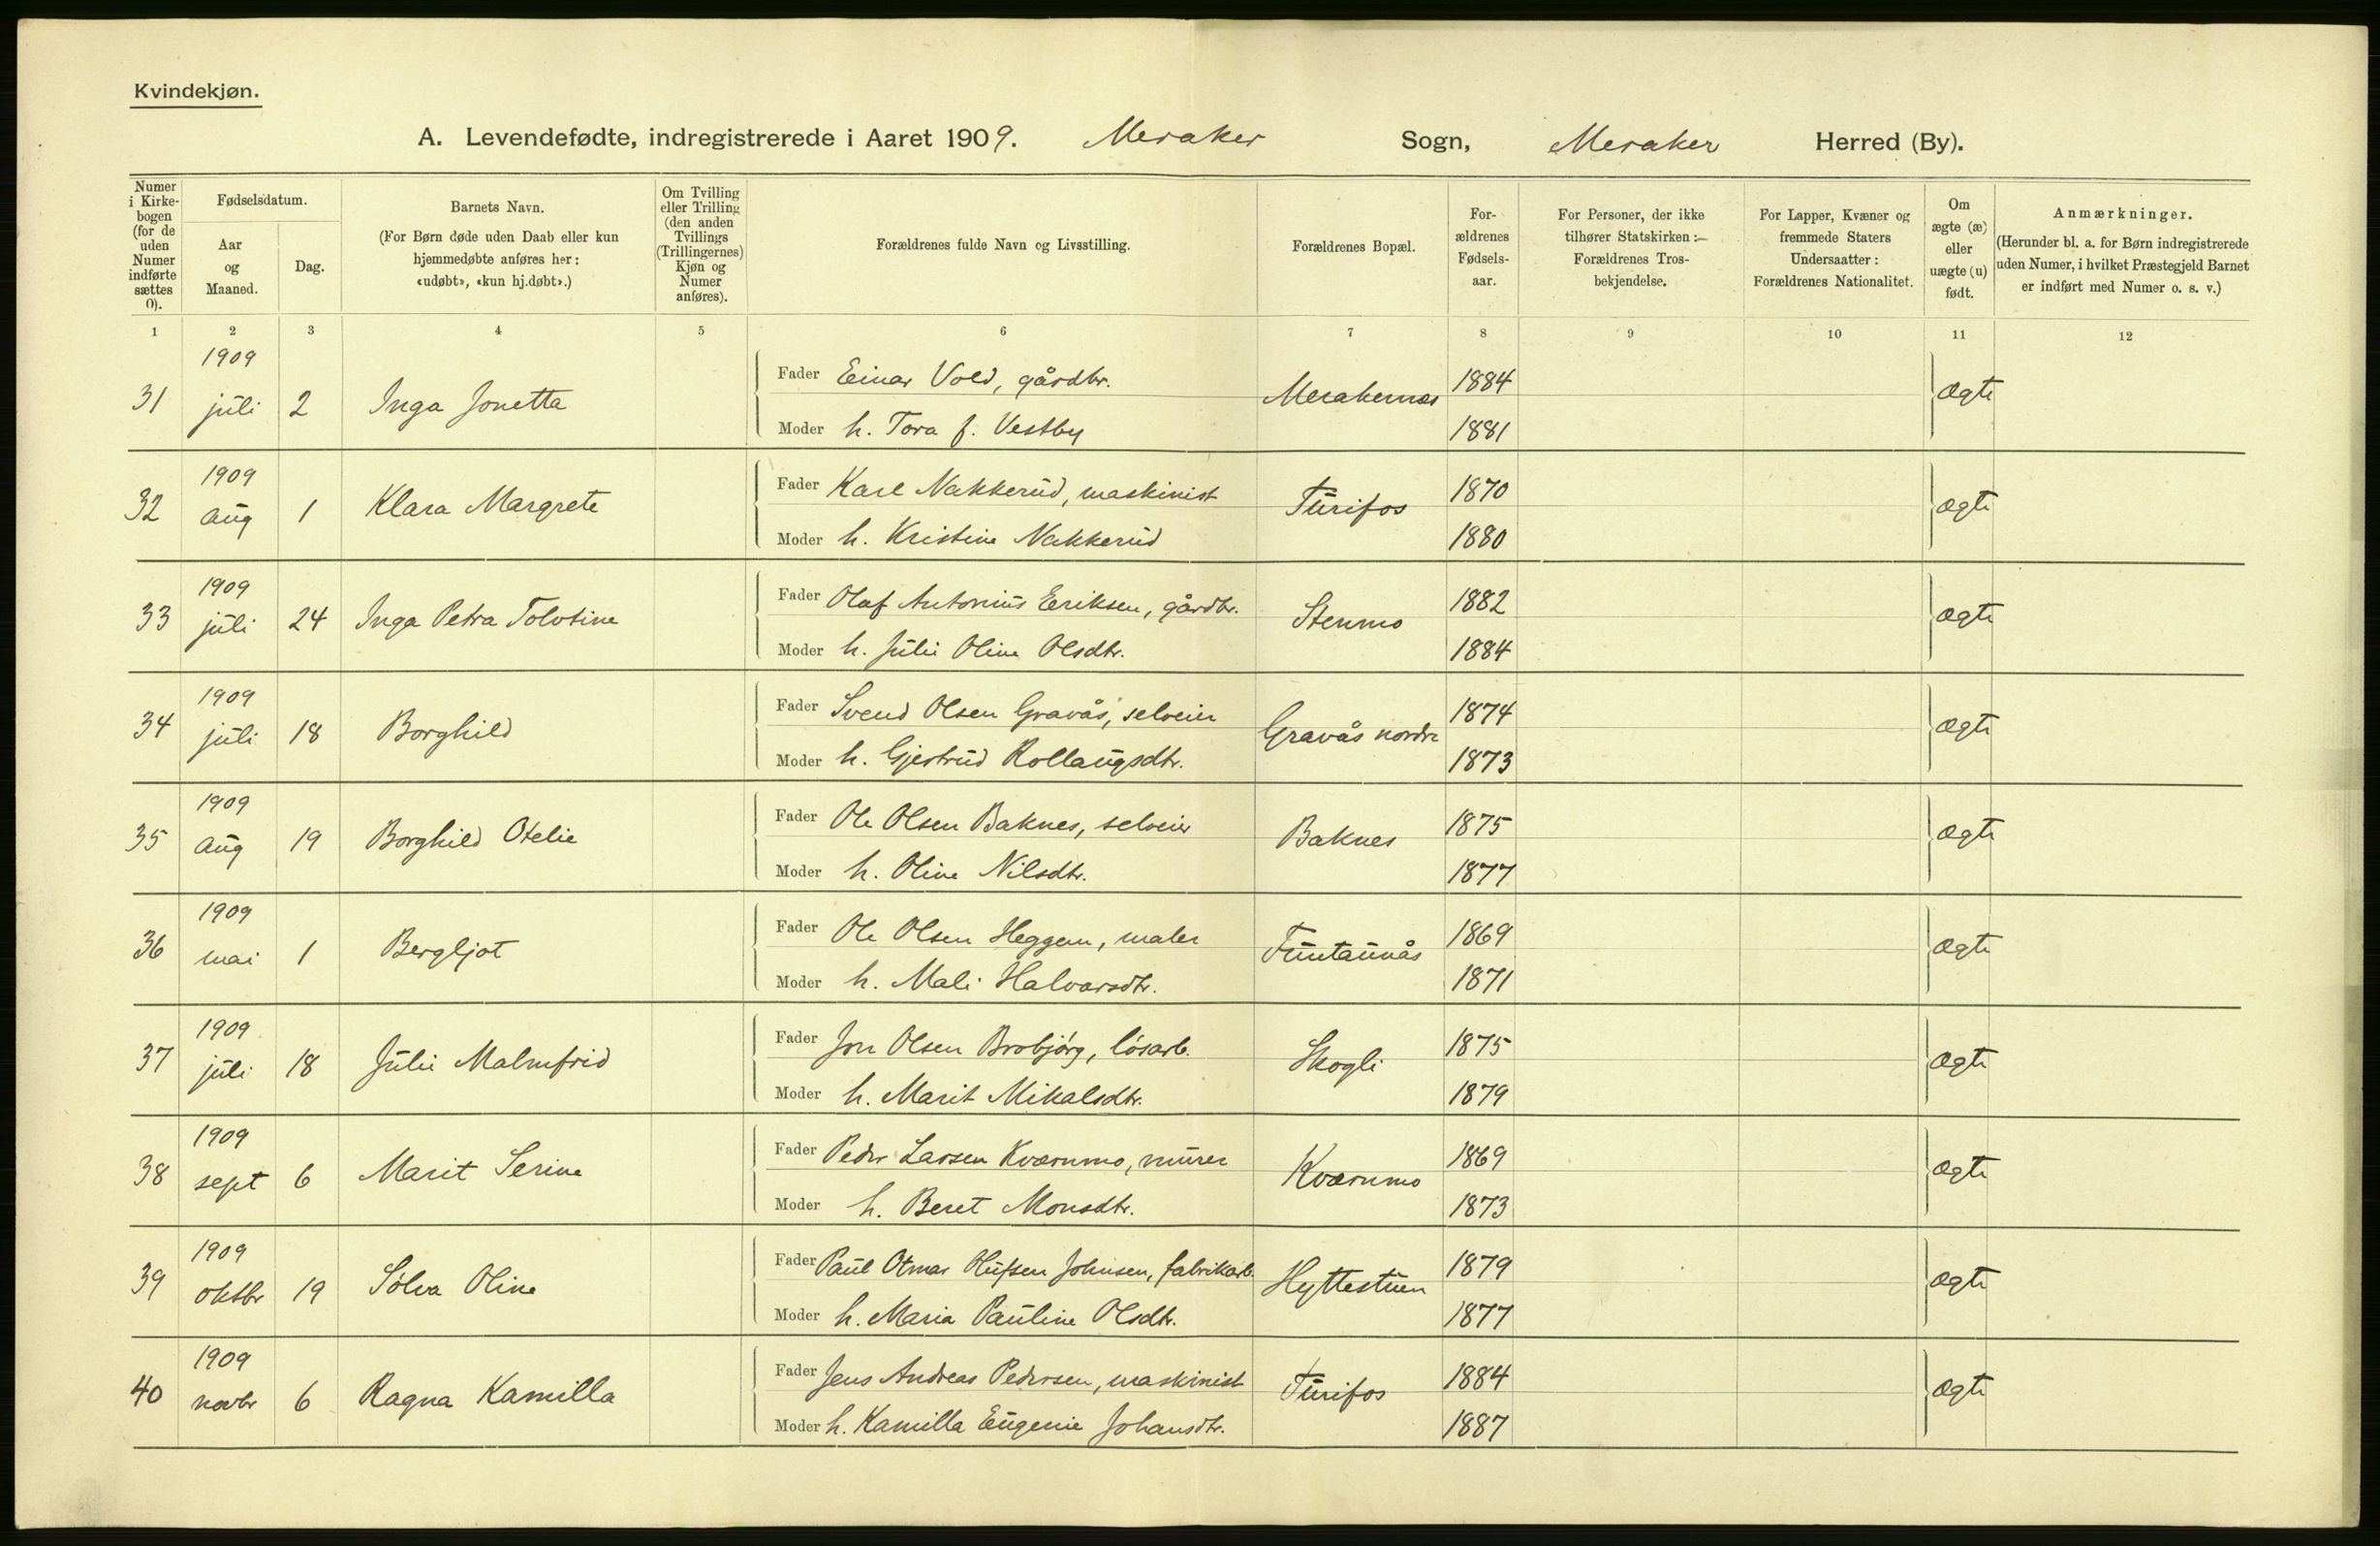 Kvindekjøn.
A. Levendefødte, indregistrerede i Aaret 1909. Meraker Sogn, Meraker Herred (By).
Numer i Kirkebogen (for de uden Numer indførte sættes 0).
Fødselsdatum.
Aar og Maaned.
Dag.
Barnets Navn.
(For Børn døde uden Daab eller kun hjemmedøbte anføres her: «udøbt», «kun hj.døbt».)
Om Tvilling eller Trilling (den anden Tvillings (Trillingernes) Kjøn og Numer anføres).
Forældrenes fulde Navn og Livsstilling.
Forældrenes Bopæl.
Forældrenes Fødselsaar.
For Personer, der ikke tilhører Statskirken:— Forældrenes Trosbekjendelse.
For Lapper, Kvæner og fremmede Staters Undersaatter: Forældrenes Nationalitet.
Om ægte (æ) eller uægte (u) født.
Anmærkninger.
(Herunder bl. a. for Børn indregistrerede uden Numer, i hvilket Præstegjeld Barnet er indført med Numer o. s. v.)
1 2 3 4 5 6 7 8 9 10 11 12
31 1909 juli 2 Inga Jonetta Fader Einar Vold, gårdbr. Merakernes 1884 ægte
Moder h. Tora f. Vestby 1881
32 1909 aug 1 Klara Margrete Fader Karl Nakkerud, maskinist Turifos 1870 ægte
Moder h. Kristine Nakkerud 1880
33 1909 juli 24 Inga Petra Tolotine Fader Olaf Antonius Eeriksen, gårdbr. Stenmo 1882 ægte
Moder h. Julie Oline Olsdtr. 1884
34 1909 juli 18 Borghild Fader Svend Olsen Gravås, selveier Gravås nordre 1874 ægte
Moder h. Gjertrud Rollaugsdtr. 1873
35 1909 aug 19 Borghild Otelie Fader Ole Olsen Baknes, selveier Baknes 1875 ægte
Moder h. Oline Nilsdtr. 1877
36 1909 mai 1 Bergljot Fader Ole Olsen Heggem, maler Funtaunås 1869 ægte
Moder h. Mali Halvarsdtr. 1871
37 1909 juli 18 Julie Malmfrid Fader Jon Olsen Brobjörg, lösarb. Skogli 1875 ægte
Moder h. Marit Mikalsdtr. 1879
38 1909 sept 6 Marit Serine Fader Peder Larsen Kværnmo, murer Kværnmo 1869 ægte
Moder h. Beret Monsdtr. 1873
39 1909 oktbr 19 Sólva Oline Fader Paul Otmar Olufsen Johnsen, fabrikarb. Hyttestuen 1879 ægte
Moder h. Maria Pauline Olsdtr. 1877
40 1909 novbr 6 Ragna Kamilla Fader Jens Andreas Pedersen, maskinist Turifos 1884 ægte
Moder h. Kamilla Eugenie Johansdtr. 1887